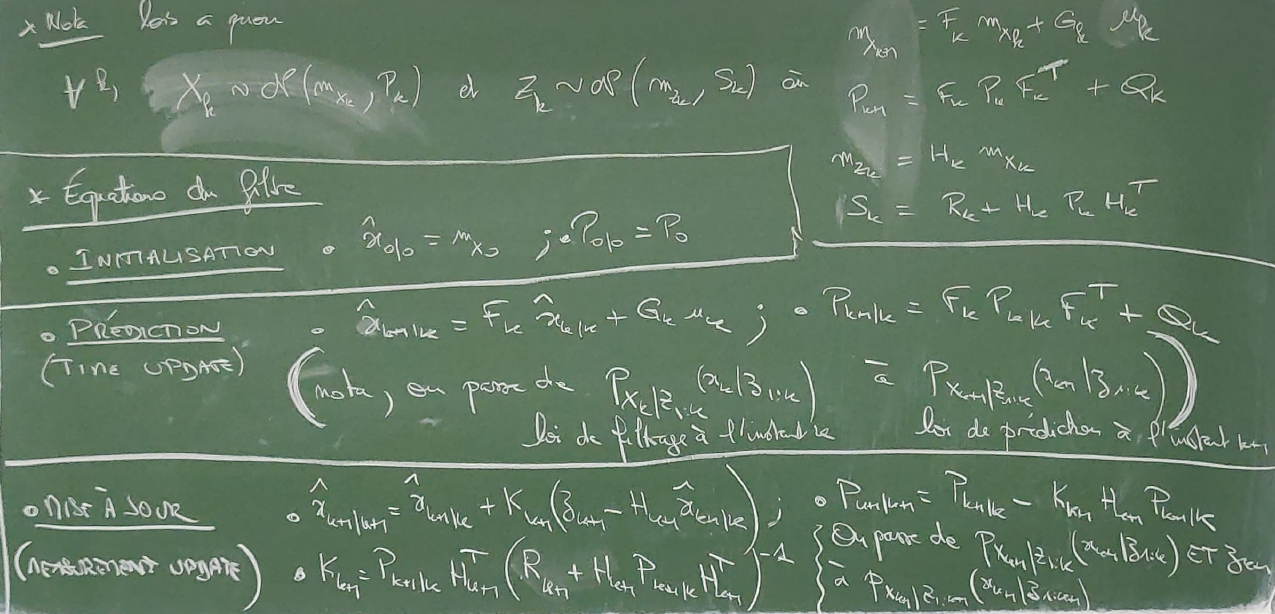 * Nota lois a priori
∀ k, X_k ~ N(m_{X_k}, P_k) et Z_k ~ N(m_{Z_k}, S_k) où
m_{X_{k+1}} = F_k m_{X_k} + G_k u_k
P_{k+1} = F_k P_k F_k^T + Q_k
m_{Z_k} = H_k m_{X_k}
S_k = R_k + H_k P_k H_k^T
* Équations du filtre
• INITIALISATION • x̂_{0|0} = m_{X_0} ; • P_{0|0} = P_0
• PRÉDICTION • x̂_{k+1|k} = F_k x̂_{k|k} + G_k u_k ; • P_{k+1|k} = F_k P_{k|k} F_k^T + Q_k
(TIME UPDATE) (nota, on passe de p_{X_k|Z_{1:k}}(x_k|z_{1:k}) à p_{X_{k+1}|Z_{1:k}}(x_{k+1}|z_{1:k}))
loi de filtrage à l'instant k loi de prédiction à l'instant k+1
• MISE À JOUR • x̂_{k+1|k+1} = x̂_{k+1|k} + K_{k+1}(z_{k+1} - H_{k+1} x̂_{k+1|k}) ; • P_{k+1|k+1} = P_{k+1|k} - K_{k+1} H_{k+1} P_{k+1|k}
(MEASUREMENT UPDATE) • K_{k+1} = P_{k+1|k} H_{k+1}^T (R_{k+1} + H_{k+1} P_{k+1|k} H_{k+1}^T)^{-1}
{ On passe de p_{X_{k+1}|Z_{1:k}}(x_{k+1}|z_{1:k}) ET z_{k+1}
à p_{X_{k+1}|Z_{1:k+1}}(x_{k+1}|z_{1:k+1})